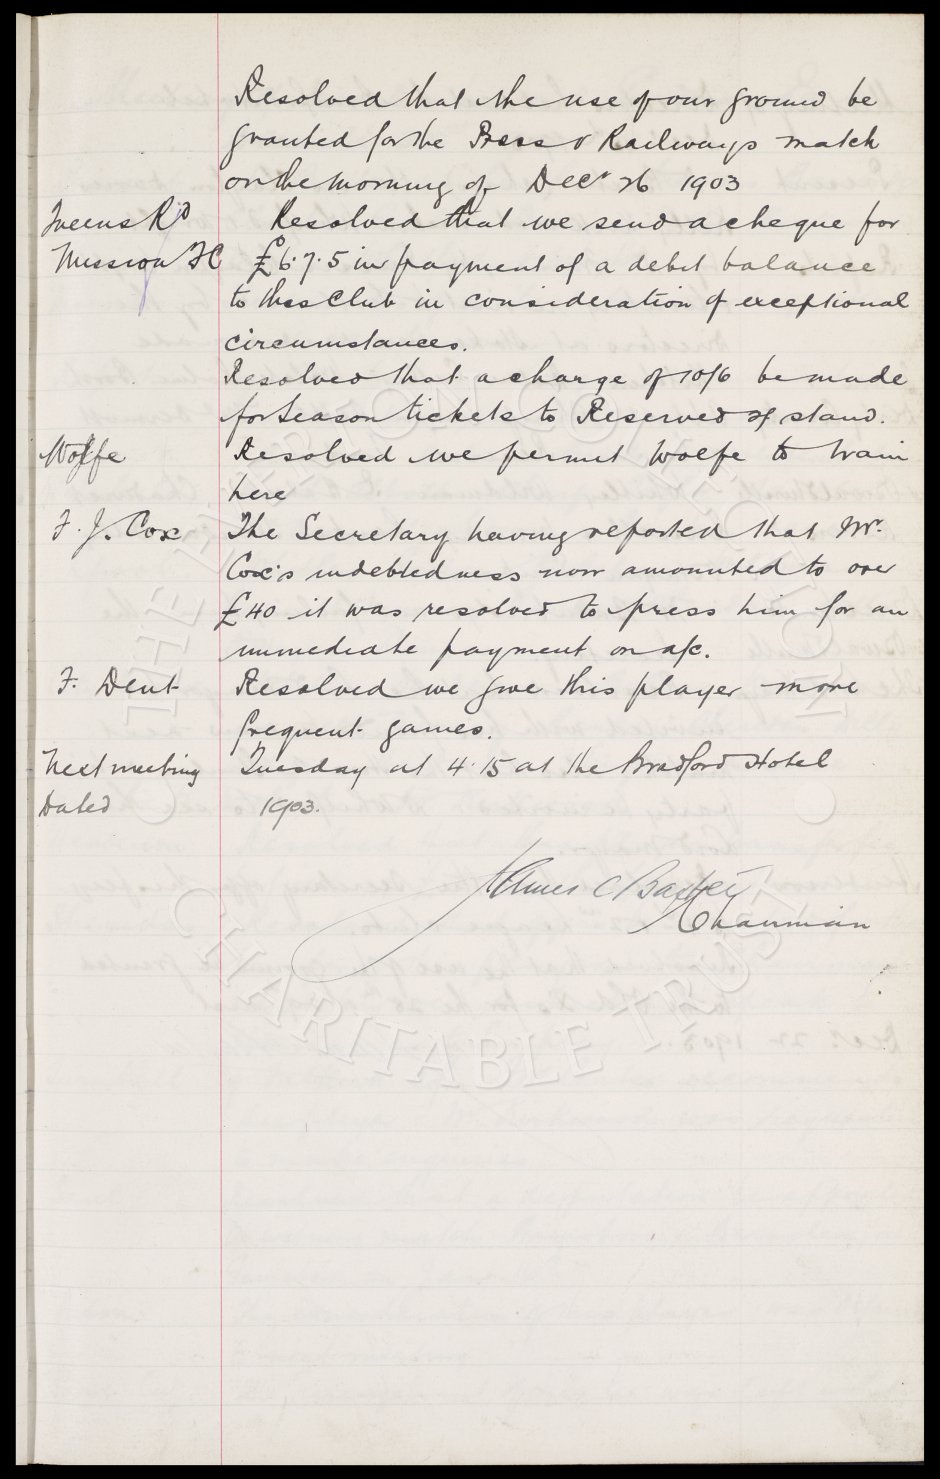 Resolved that the use of our ground be
granted for the Press v Railways match
on the morning of Decr 26 1903
Queens Rd Resolved that we send a cheque for
Mission FC £6.7.5 in payment of a debit balance
to this Club in consideration of exceptional
circumstances.
Resolved that a charge of 10/6 be made
for Season tickets to Reserved of stand.
Wolfe Resolved we permit Wolfe to train
here
F. J. Cox The Secretary having reported that Mr.
Cox's indebtedness now amounted to over
£40 it was resolved to press him for an
immediate payment on a/c.
F. Dent Resolved we give this player more
frequent games.
Next meeting Tuesday at 4.15 at the Bradford Hotel
Dated 1903.
James C Baxter
Chairman
THE EVERTON COLLECTION
CHARITABLE TRUST